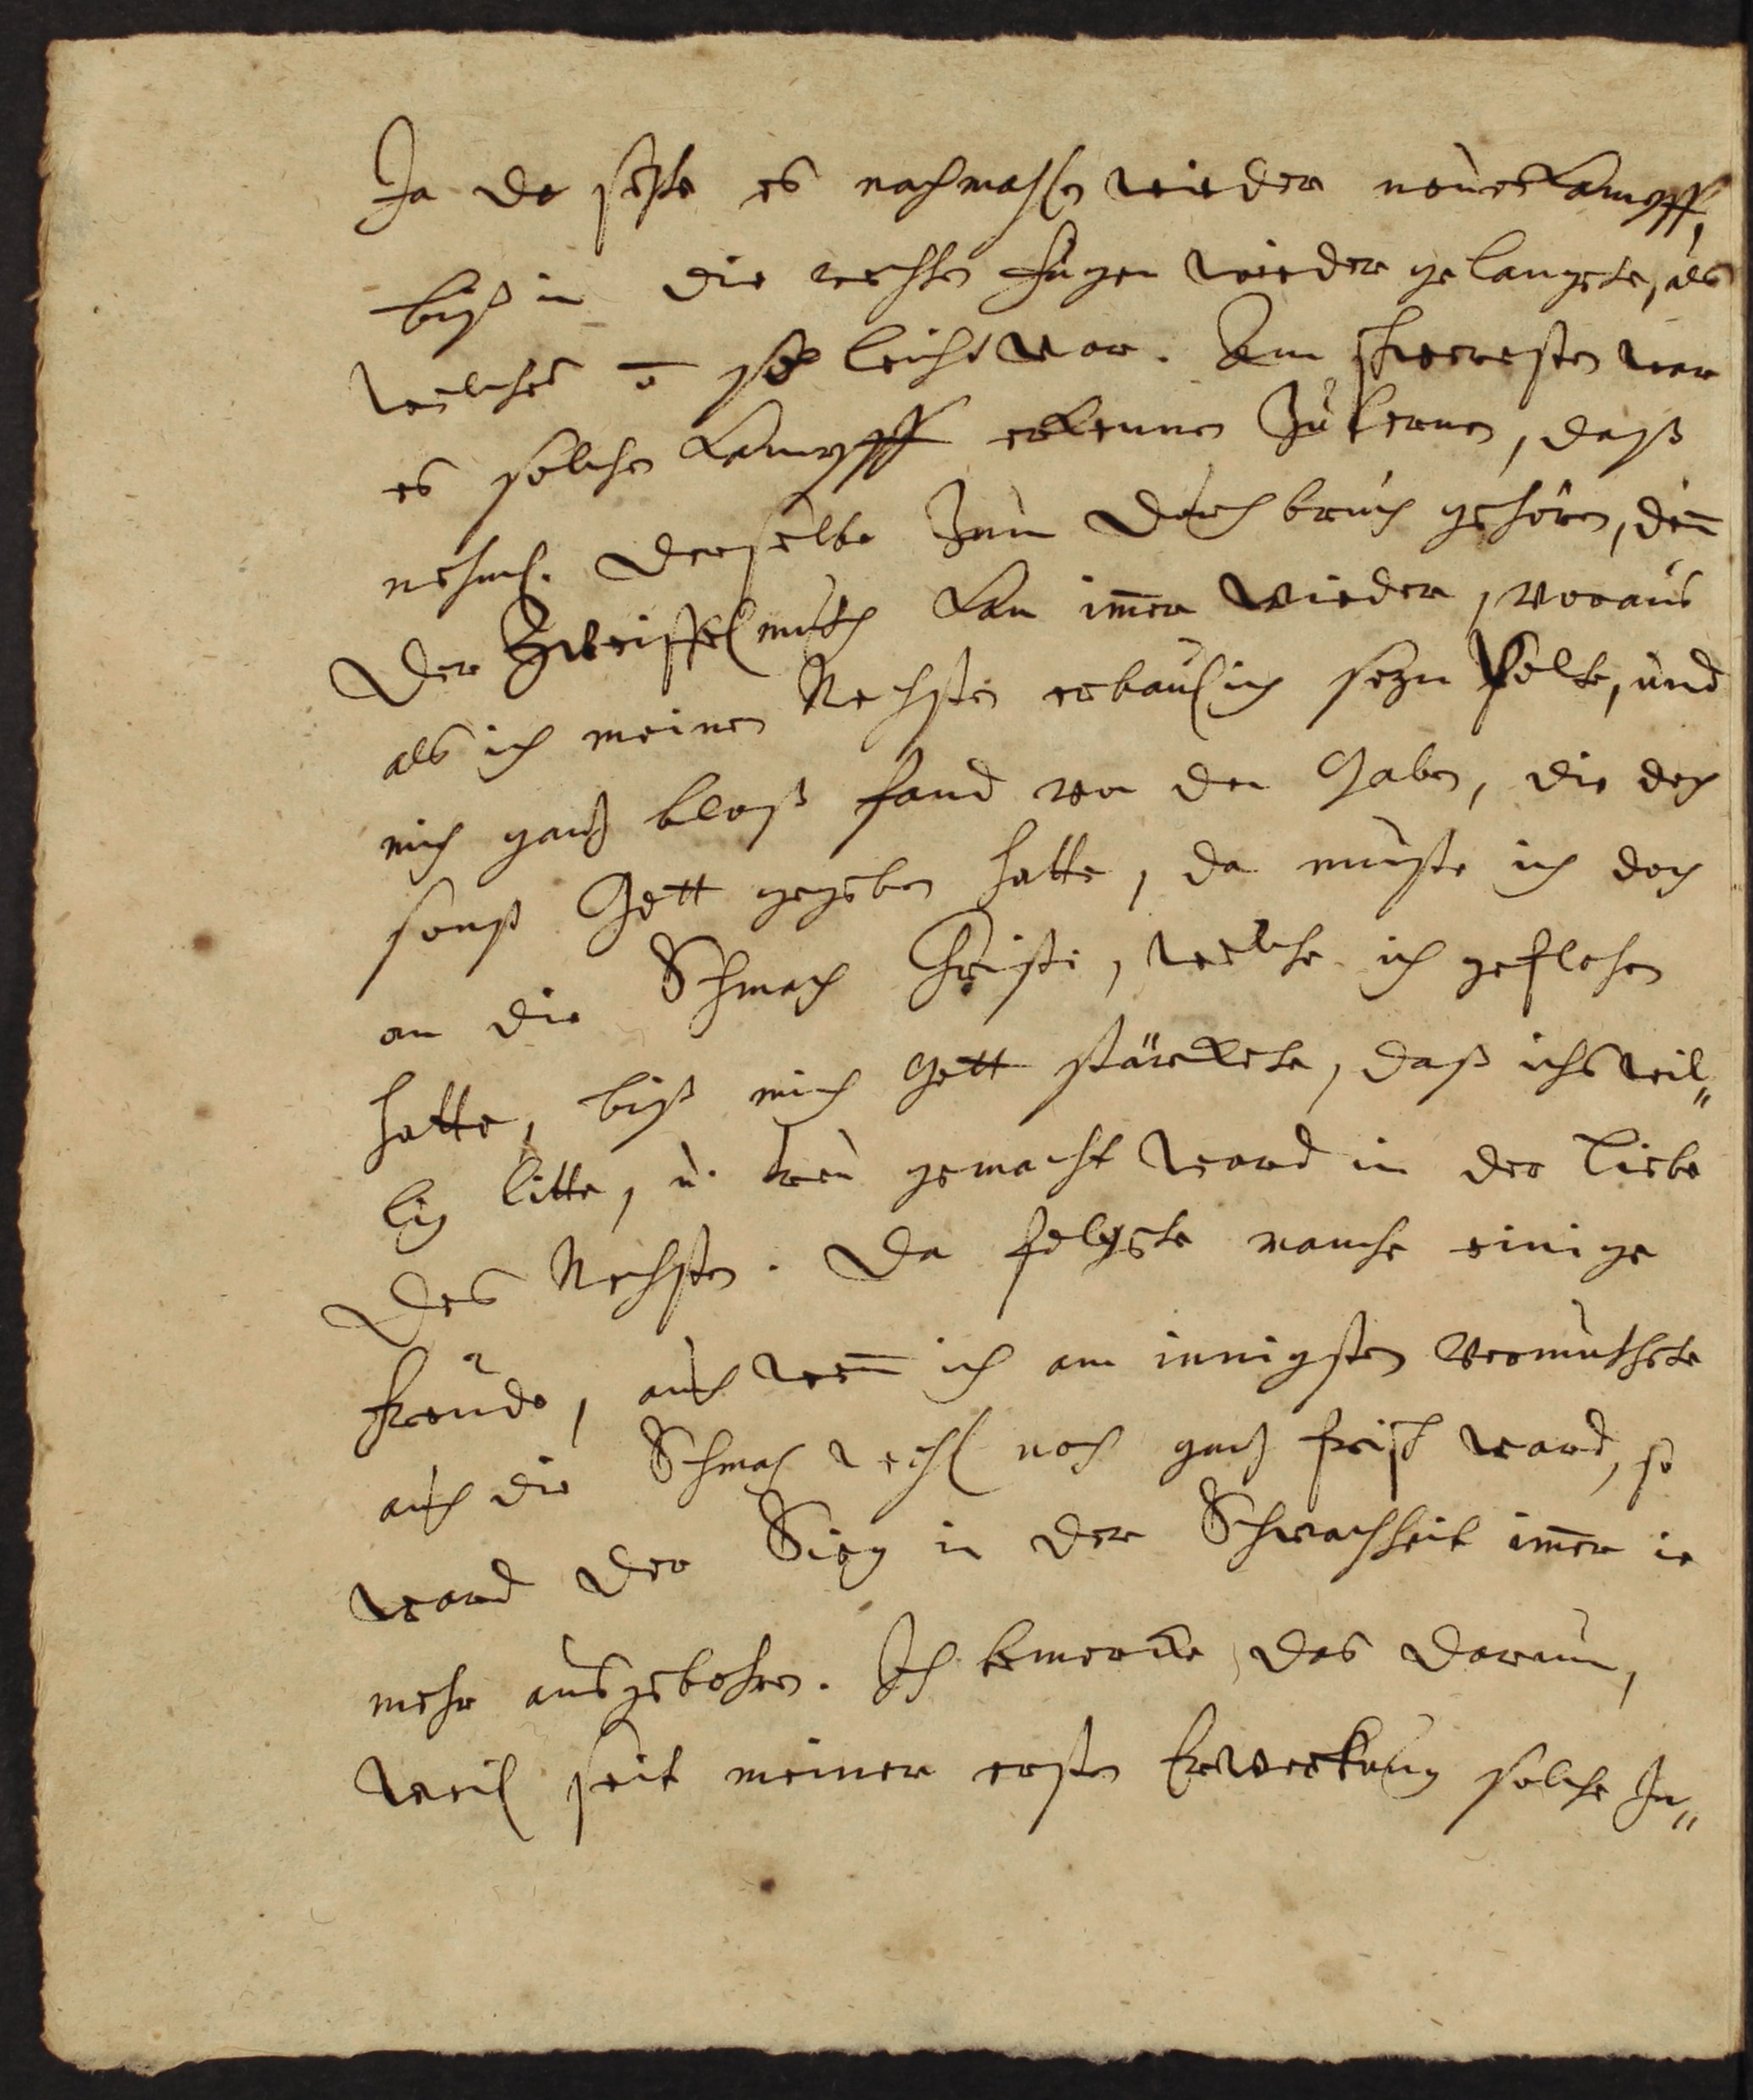 Ja da setzte es nachmahlen wieder neuen Kampff,
biß in die rechten Fugen wieder gelangete, als
welches so leicht war. Am schweresten war
es solchen Kampff erkennen zu lernen, daß
nehml. derselbe zum Durchbruch gehöre, deñ
der Zweiffelmuth kam im̃er wieder, voraus
als ich meinen Nechsten erbaulich seyn solte, und
mich gantz bloß fand von den Gaben, die doch
sonst Gott gegeben hatte, da muste ich doch
an die Schmach Christi, welche ich geflohen
hatte, biß mich Gott stärckete, daß ichs wil„
lig litte, u. treu gemacht ward in der Liebe
des Nechsten. Da folgete manche einige
Freude, auch weñ ich am innigsten vermuthete
auch die Schmach noch gantz frisch ward, so
ward der Sieg in der Schwachheit im̃er ie
mehr ausgebohren. Ich bemercke das darum,
weil seit meiner ersten Erweckung solche In„